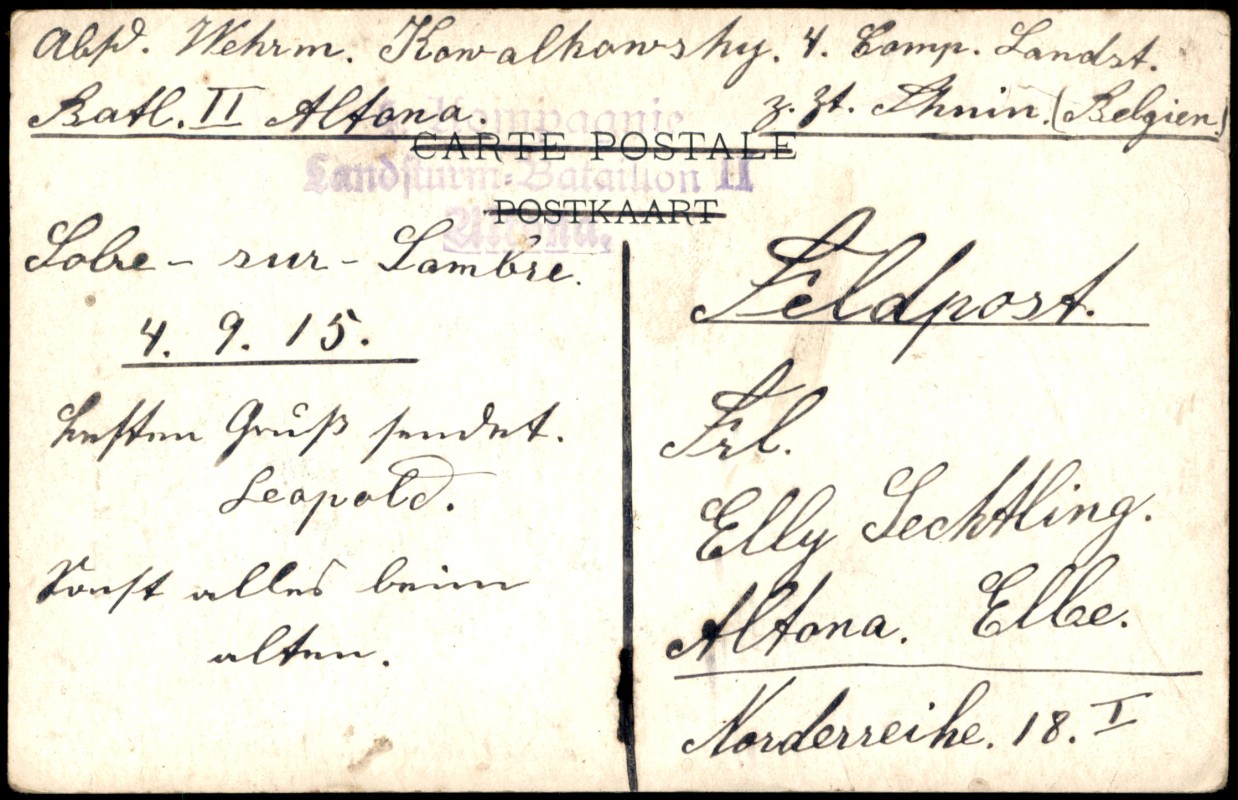 Absd. Wehrm. Kowalkowsky. 4. Comp. Landst.
Batl. II Altona. z. Zt. Thuin. (Belgien)
Kompagnie
CARTE POSTALE
Landsturm-Bataillon II
POSTKAART
Altona.
Solre-sur-Sambre.
4. 9. 15.
Besten Gruß sendet.
Leopold.
Sonst alles beim
alten.
Feldpost.
Frl.
Elly Sechtling.
Altona. Elbe.
Norderreihe. 18. I